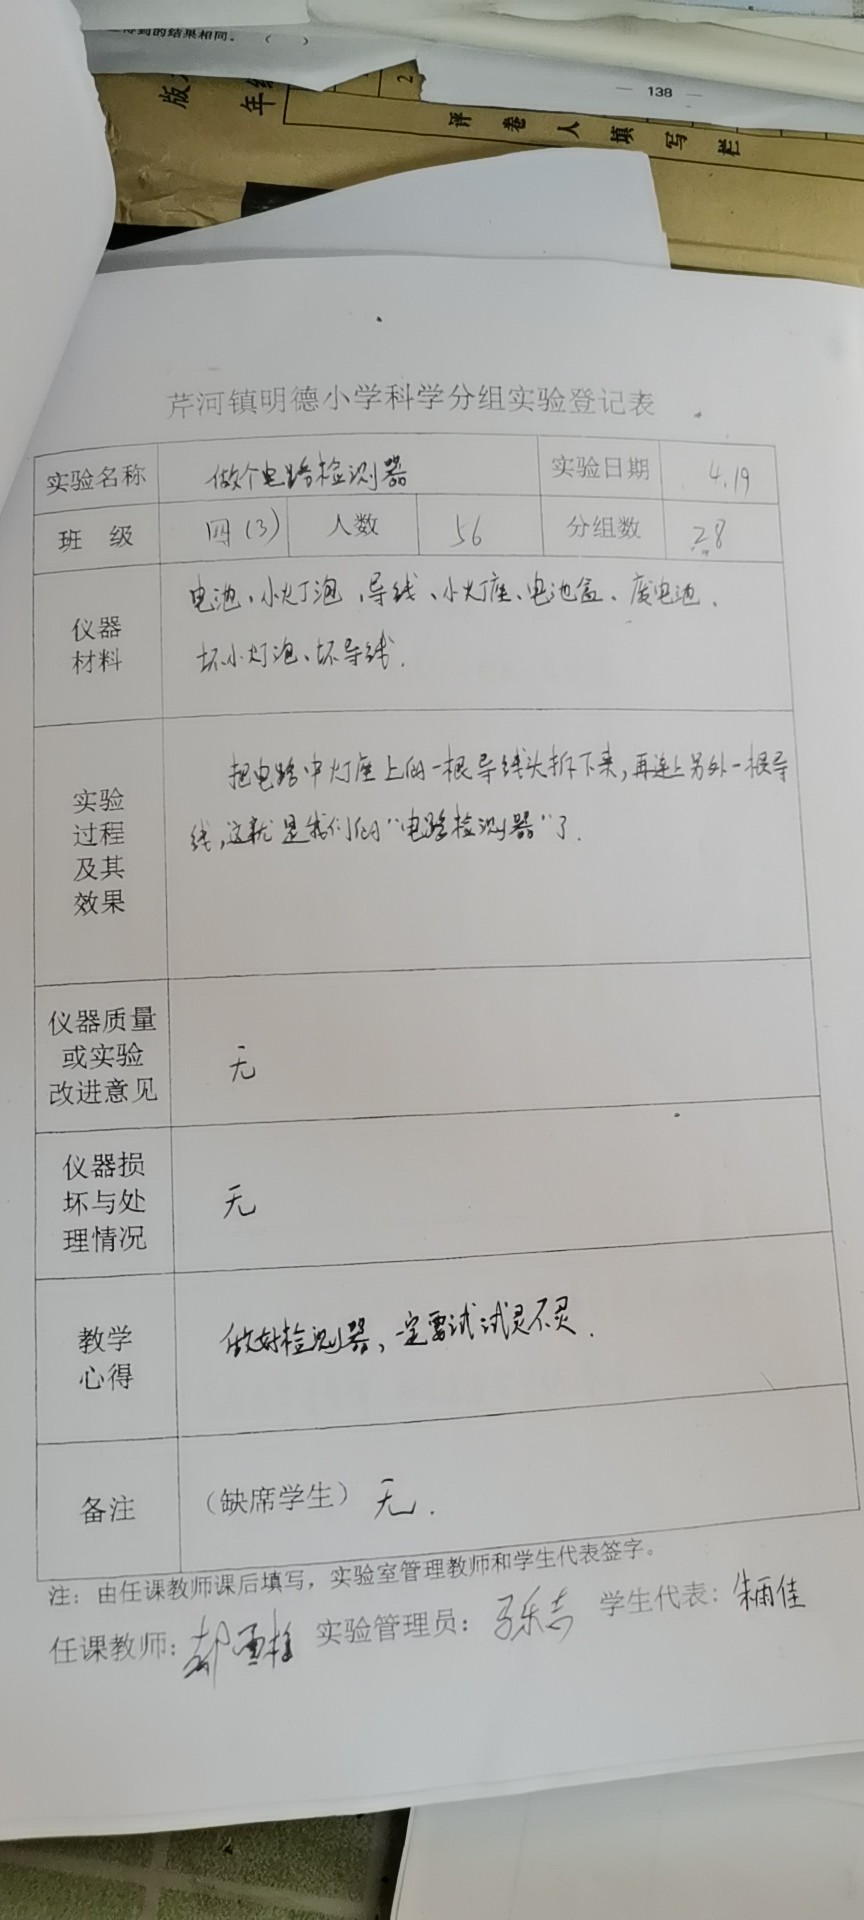 得到的结果相同。（ ）
138
评卷人填写栏
芹河镇明德小学科学分组实验登记表
实验名称 做个电路检测器 实验日期 4.19
班级 四(3) 人数 56 分组数 28
仪器材料 电池、小灯泡、导线、小灯座、电池盒、废电池、
坏小灯泡、坏导线.
实验过程及其效果 把电路中灯座上的一根导线头拆下来,再连上另外一根导
线,这就是我们的“电路检测器”了.
仪器质量或实验改进意见 无
仪器损坏与处理情况 无
教学心得 做好检测器,一定要试试灵不灵.
备注 （缺席学生） 无.
注：由任课教师课后填写，实验室管理教师和学生代表签字。
任课教师: 实验管理员: 学生代表: 朱雨佳